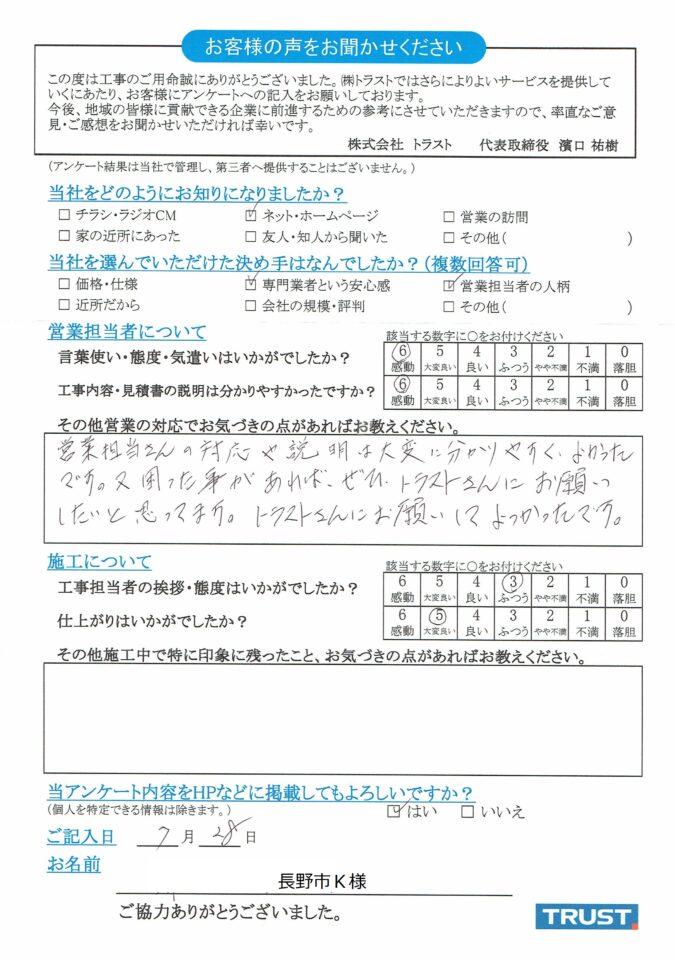 お客様の声をお聞かせください
この度は工事のご用命誠にありがとうございました。㈱トラストではさらによりよいサービスを提供して
いくにあたり、お客様にアンケートへの記入をお願いしております。
今後、地域の皆様に貢献できる企業に前進するための参考にさせていただきますので、率直なご意
見・ご感想をお聞かせいただければ幸いです。
株式会社 トラスト 代表取締役 濱口 祐樹
(アンケート結果は当社で管理し、第三者へ提供することはございません。)
当社をどのようにお知りになりましたか?
□ チラシ・ラジオCM ☑ ネット・ホームページ □ 営業の訪問
□ 家の近所にあった □ 友人・知人から聞いた □ その他( )
当社を選んでいただけた決め手はなんでしたか?(複数回答可)
□ 価格・仕様 ☑ 専門業者という安心感 ☑ 営業担当者の人柄
□ 近所だから □ 会社の規模・評判 □ その他( )
営業担当者について
該当する数字に○をお付けください
言葉使い・態度・気遣いはいかがでしたか?
6 5 4 3 2 1 0
感動 大変良い 良い ふつう やや不満 不満 落胆
工事内容・見積書の説明は分かりやすかったですか?
6 5 4 3 2 1 0
感動 大変良い 良い ふつう やや不満 不満 落胆
その他営業の対応でお気づきの点があればお教えください。
営業担当さんの対応や説明は大変に分かりやすく、よかった
です。又困った事があれば、ぜひ、トラストさんにお願い
したいと思ってます。トラストさんにお願いしてよっかったです。
施工について
該当する数字に○をお付けください
工事担当者の挨拶・態度はいかがでしたか?
6 5 4 3 2 1 0
感動 大変良い 良い ふつう やや不満 不満 落胆
仕上がりはいかがでしたか?
6 5 4 3 2 1 0
感動 大変良い 良い ふつう やや不満 不満 落胆
その他施工中で特に印象に残ったこと、お気づきの点があればお教えください。
当アンケート内容をHPなどに掲載してもよろしいですか?
(個人を特定できる情報は除きます。)
☑ はい □ いいえ
ご記入日 7 月 28 日
お名前
長野市K様
ご協力ありがとうございました。
TRUST.